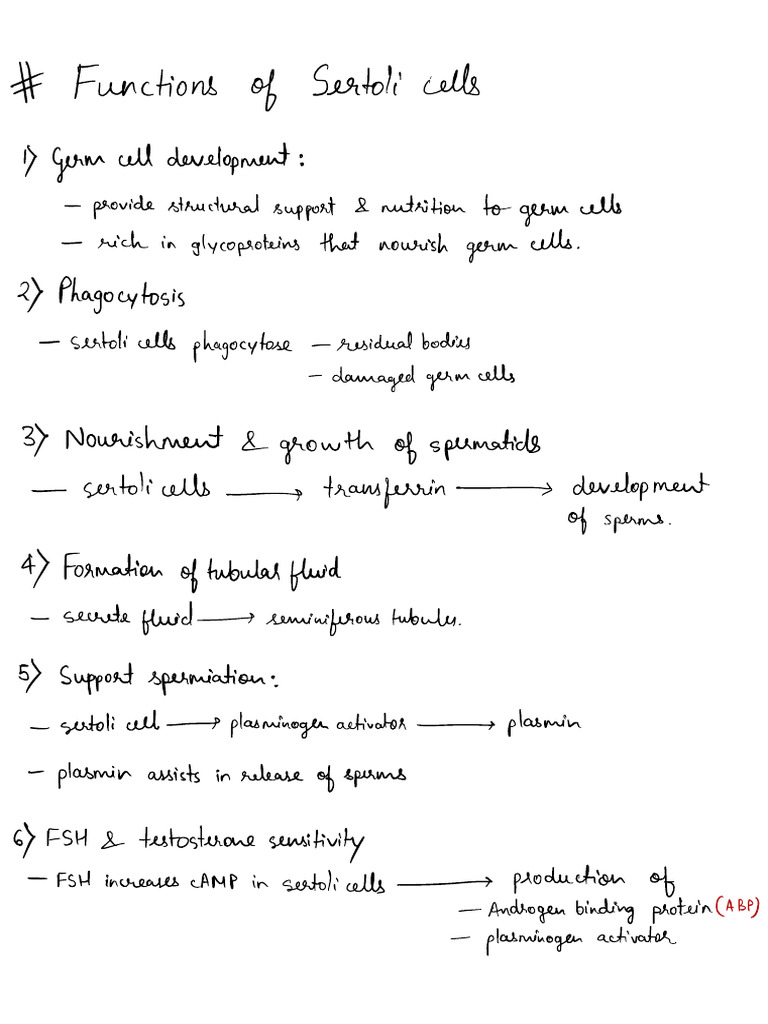 # Functions of Sertoli cells
1) Germ cell development:
— provide structural support & nutrition to germ cells
— rich in glycoproteins that nourish germ cells.
2) Phagocytosis
— sertoli cells phagocytose — residual bodies
— damaged germ cells
3) Nourishment & growth of spermatids
— sertoli cells ⟶ transferrin ⟶ development
of sperms.
4) Formation of tubular fluid
— secrete fluid ⟶ seminiferous tubules.
5) Support spermiation:
— sertoli cell ⟶ plasminogen activator ⟶ plasmin
— plasmin assists in release of sperms
6) FSH & testosterone sensitivity
— FSH increases cAMP in sertoli cells ⟶ production of
— Androgen binding protein (ABP)
— plasminogen activator